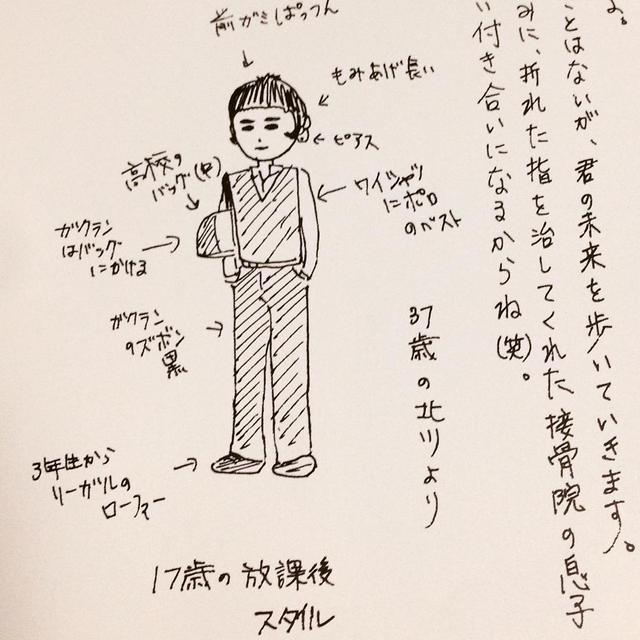 よ。
ことはないが、君の未来を歩いていきます。
みに、折れた指を治してくれた接骨院の息子
い付き合いになるからね(笑)。
37歳の北川より
前ガミぱっつん
もみあげ長い
ピアス
高校の
バッグ(笑)
ワイシャツ
にポロ
のベスト
ガクラン
はバッグ
にかける
ガクラン
のズボン
黒
3年生から
リーガルの
ローファー
17歳の放課後
スタイル